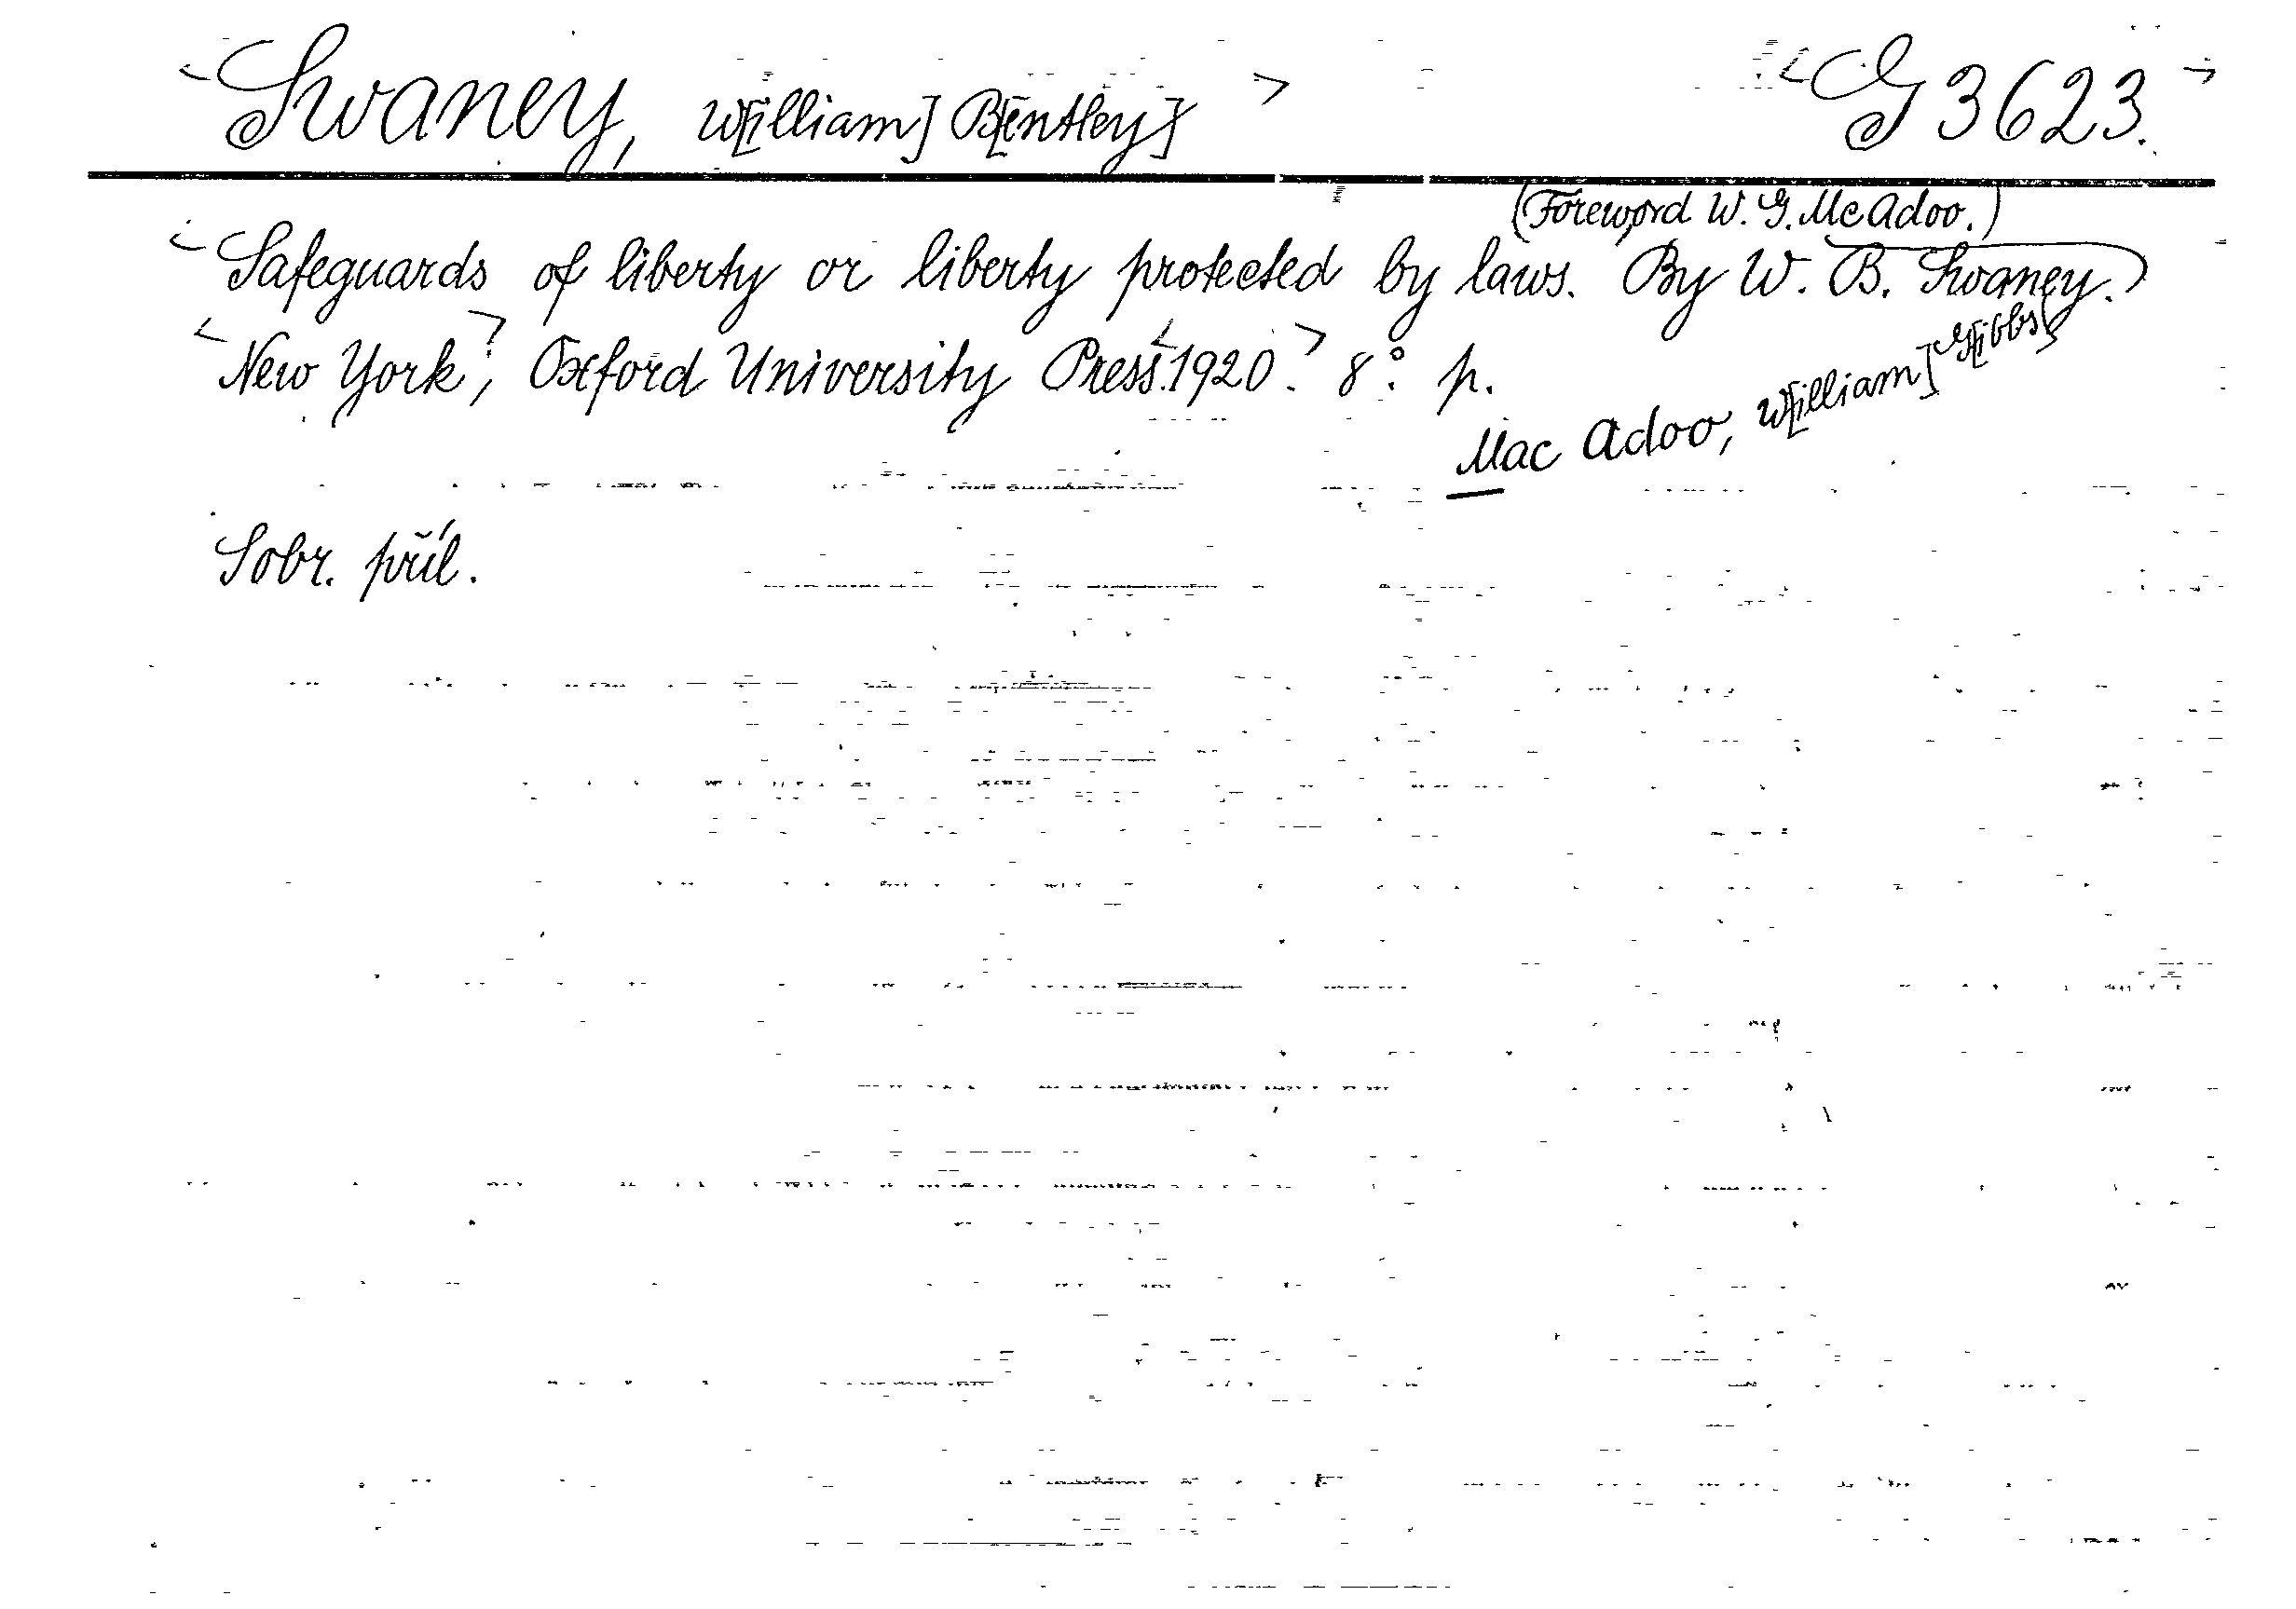 <Swaney, W[illiam] B[entley] > <G 3623.>
(Foreword W. G. Mc Adoo.)
<Safeguards of liberty or liberty protected by laws. By W. B. Swaney.)
<New York>, Oxford University Press.<1920.> 8°. p.
Mac Adoo, W[illiam] G[ibbs]
Sobr. příl.